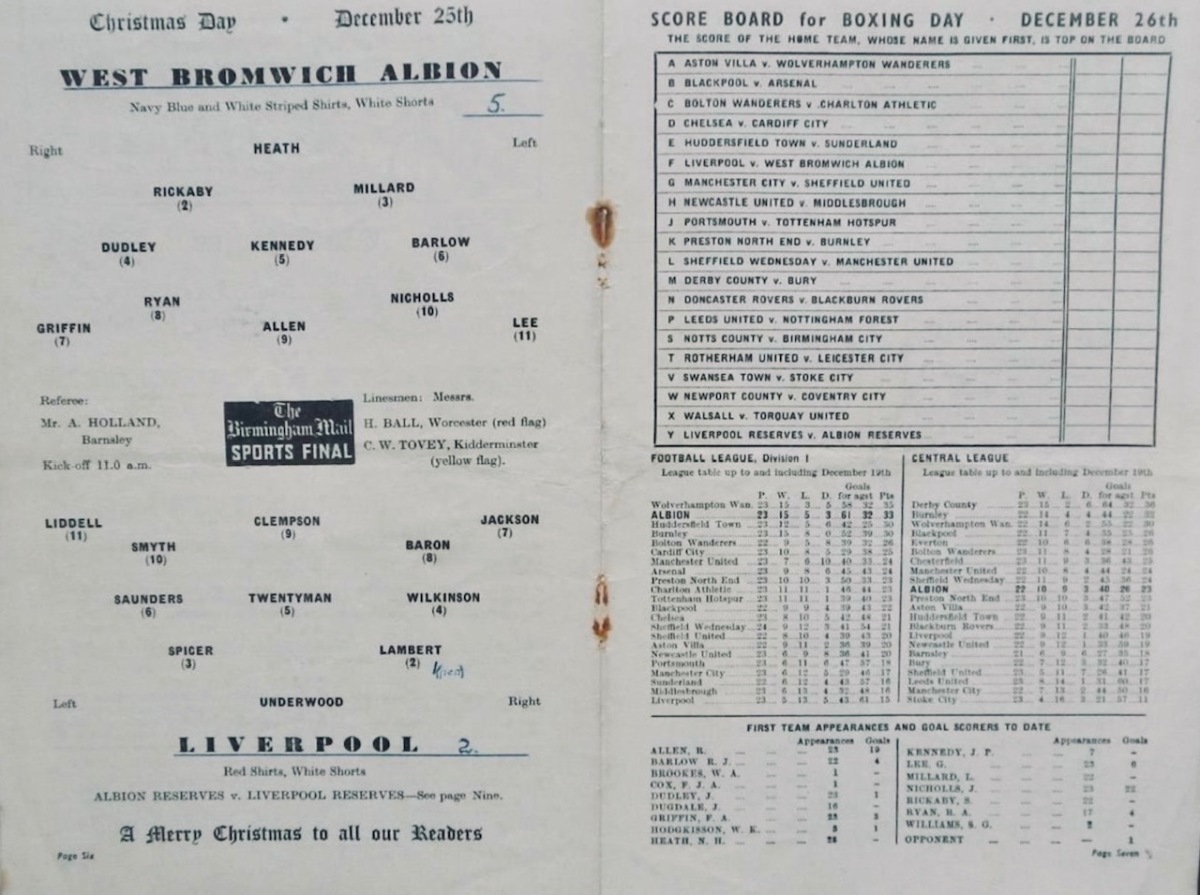 Christmas Day • December 25th
WEST BROMWICH ALBION
Navy Blue and White Striped Shirts, White Shorts 5.
Right HEATH Left
RICKABY MILLARD
(2) (3)
DUDLEY KENNEDY BARLOW
(4) (5) (6)
RYAN NICHOLLS
(8) (10)
GRIFFIN ALLEN LEE
(7) (9) (11)
Referee:
Mr. A. HOLLAND,
Barnsley
Kick-off 11.0 a.m.
The
Birmingham Mail
SPORTS FINAL
Linesmen: Messrs.
H. BALL, Worcester (red flag)
C. W. TOVEY, Kidderminster
(yellow flag).
LIDDELL CLEMPSON JACKSON
(11) (9) (7)
SMYTH BARON
(10) (8)
SAUNDERS TWENTYMAN WILKINSON
(6) (5) (4)
SPICER LAMBERT
(3) (2)
Left UNDERWOOD Right
LIVERPOOL 2.
Red Shirts, White Shorts
ALBION RESERVES v. LIVERPOOL RESERVES—See page Nine.
A Merry Christmas to all our Readers
Page Six
SCORE BOARD for BOXING DAY • DECEMBER 26th
THE SCORE OF THE HOME TEAM, WHOSE NAME IS GIVEN FIRST, IS TOP ON THE BOARD
A ASTON VILLA v. WOLVERHAMPTON WANDERERS
B BLACKPOOL v. ARSENAL
C BOLTON WANDERERS v. CHARLTON ATHLETIC
D CHELSEA v. CARDIFF CITY
E HUDDERSFIELD TOWN v. SUNDERLAND
F LIVERPOOL v. WEST BROMWICH ALBION
G MANCHESTER CITY v. SHEFFIELD UNITED
H NEWCASTLE UNITED v. MIDDLESBROUGH
J PORTSMOUTH v. TOTTENHAM HOTSPUR
K PRESTON NORTH END v. BURNLEY
L SHEFFIELD WEDNESDAY v. MANCHESTER UNITED
M DERBY COUNTY v. BURY
N DONCASTER ROVERS v. BLACKBURN ROVERS
P LEEDS UNITED v. NOTTINGHAM FOREST
S NOTTS COUNTY v. BIRMINGHAM CITY
T ROTHERHAM UNITED v. LEICESTER CITY
V SWANSEA TOWN v. STOKE CITY
W NEWPORT COUNTY v. COVENTRY CITY
X WALSALL v. TORQUAY UNITED
Y LIVERPOOL RESERVES v. ALBION RESERVES
FOOTBALL LEAGUE, Division I
League table up to and including December 19th
Goals
P. W. L. D. for agst Pts
Wolverhampton Wan. 23 15 3 5 58 32 35
ALBION 23 15 5 3 61 32 33
Huddersfield Town 23 12 5 6 42 25 30
Burnley 23 15 8 0 52 39 30
Bolton Wanderers 22 9 5 8 39 32 26
Cardiff City 23 10 8 5 29 38 25
Manchester United 23 7 6 10 40 33 24
Arsenal 23 9 8 6 45 43 24
Preston North End 23 10 10 3 50 33 23
Charlton Athletic 23 11 11 1 46 44 23
Tottenham Hotspur 23 11 11 1 39 40 23
Blackpool 22 9 9 4 39 43 22
Chelsea 23 8 10 5 42 48 21
Sheffield Wednesday 24 9 12 3 41 54 21
Sheffield United 22 8 10 4 39 43 20
Aston Villa 22 9 11 2 36 39 20
Newcastle United 23 6 9 8 36 41 20
Portsmouth 23 6 11 6 47 57 18
Manchester City 23 6 12 5 29 46 17
Sunderland 22 6 12 4 43 57 16
Middlesbrough 23 6 13 4 32 48 16
Liverpool 23 5 13 5 43 61 15
CENTRAL LEAGUE
League table up to and including December 19th
Goals
P. W. L. D. for agst Pts
Derby County
Burnley
Wolverhampton Wan.
Blackpool
Everton
Bolton Wanderers
Chesterfield
Manchester United
Sheffield Wednesday
ALBION 22 10 9 3 40 26 23
Preston North End
Aston Villa
Huddersfield Town
Blackburn Rovers
Liverpool
Newcastle United
Barnsley
Bury
Sheffield United
Leeds United
Manchester City
Stoke City
FIRST TEAM APPEARANCES AND GOAL SCORERS TO DATE
Appearances Goals
ALLEN, R. 23 19
BARLOW R. J. 22 4
BROOKES, W. A. 1 –
COX, F. J. A. 1 –
DUDLEY, J. 23 1
DUGDALE, J. 16 –
GRIFFIN, F. A. 23 3
HODGKISSON, W. K. 3 1
HEATH, N. H. –
Appearances Goals
KENNEDY, J. P. 7 –
LEE, G. 23 6
MILLARD, L. 22 –
NICHOLLS, J. 23 22
RICKABY, S. 22 –
RYAN, R. A. 17 4
WILLIAMS, S. G. –
OPPONENT – 1
Page Seven